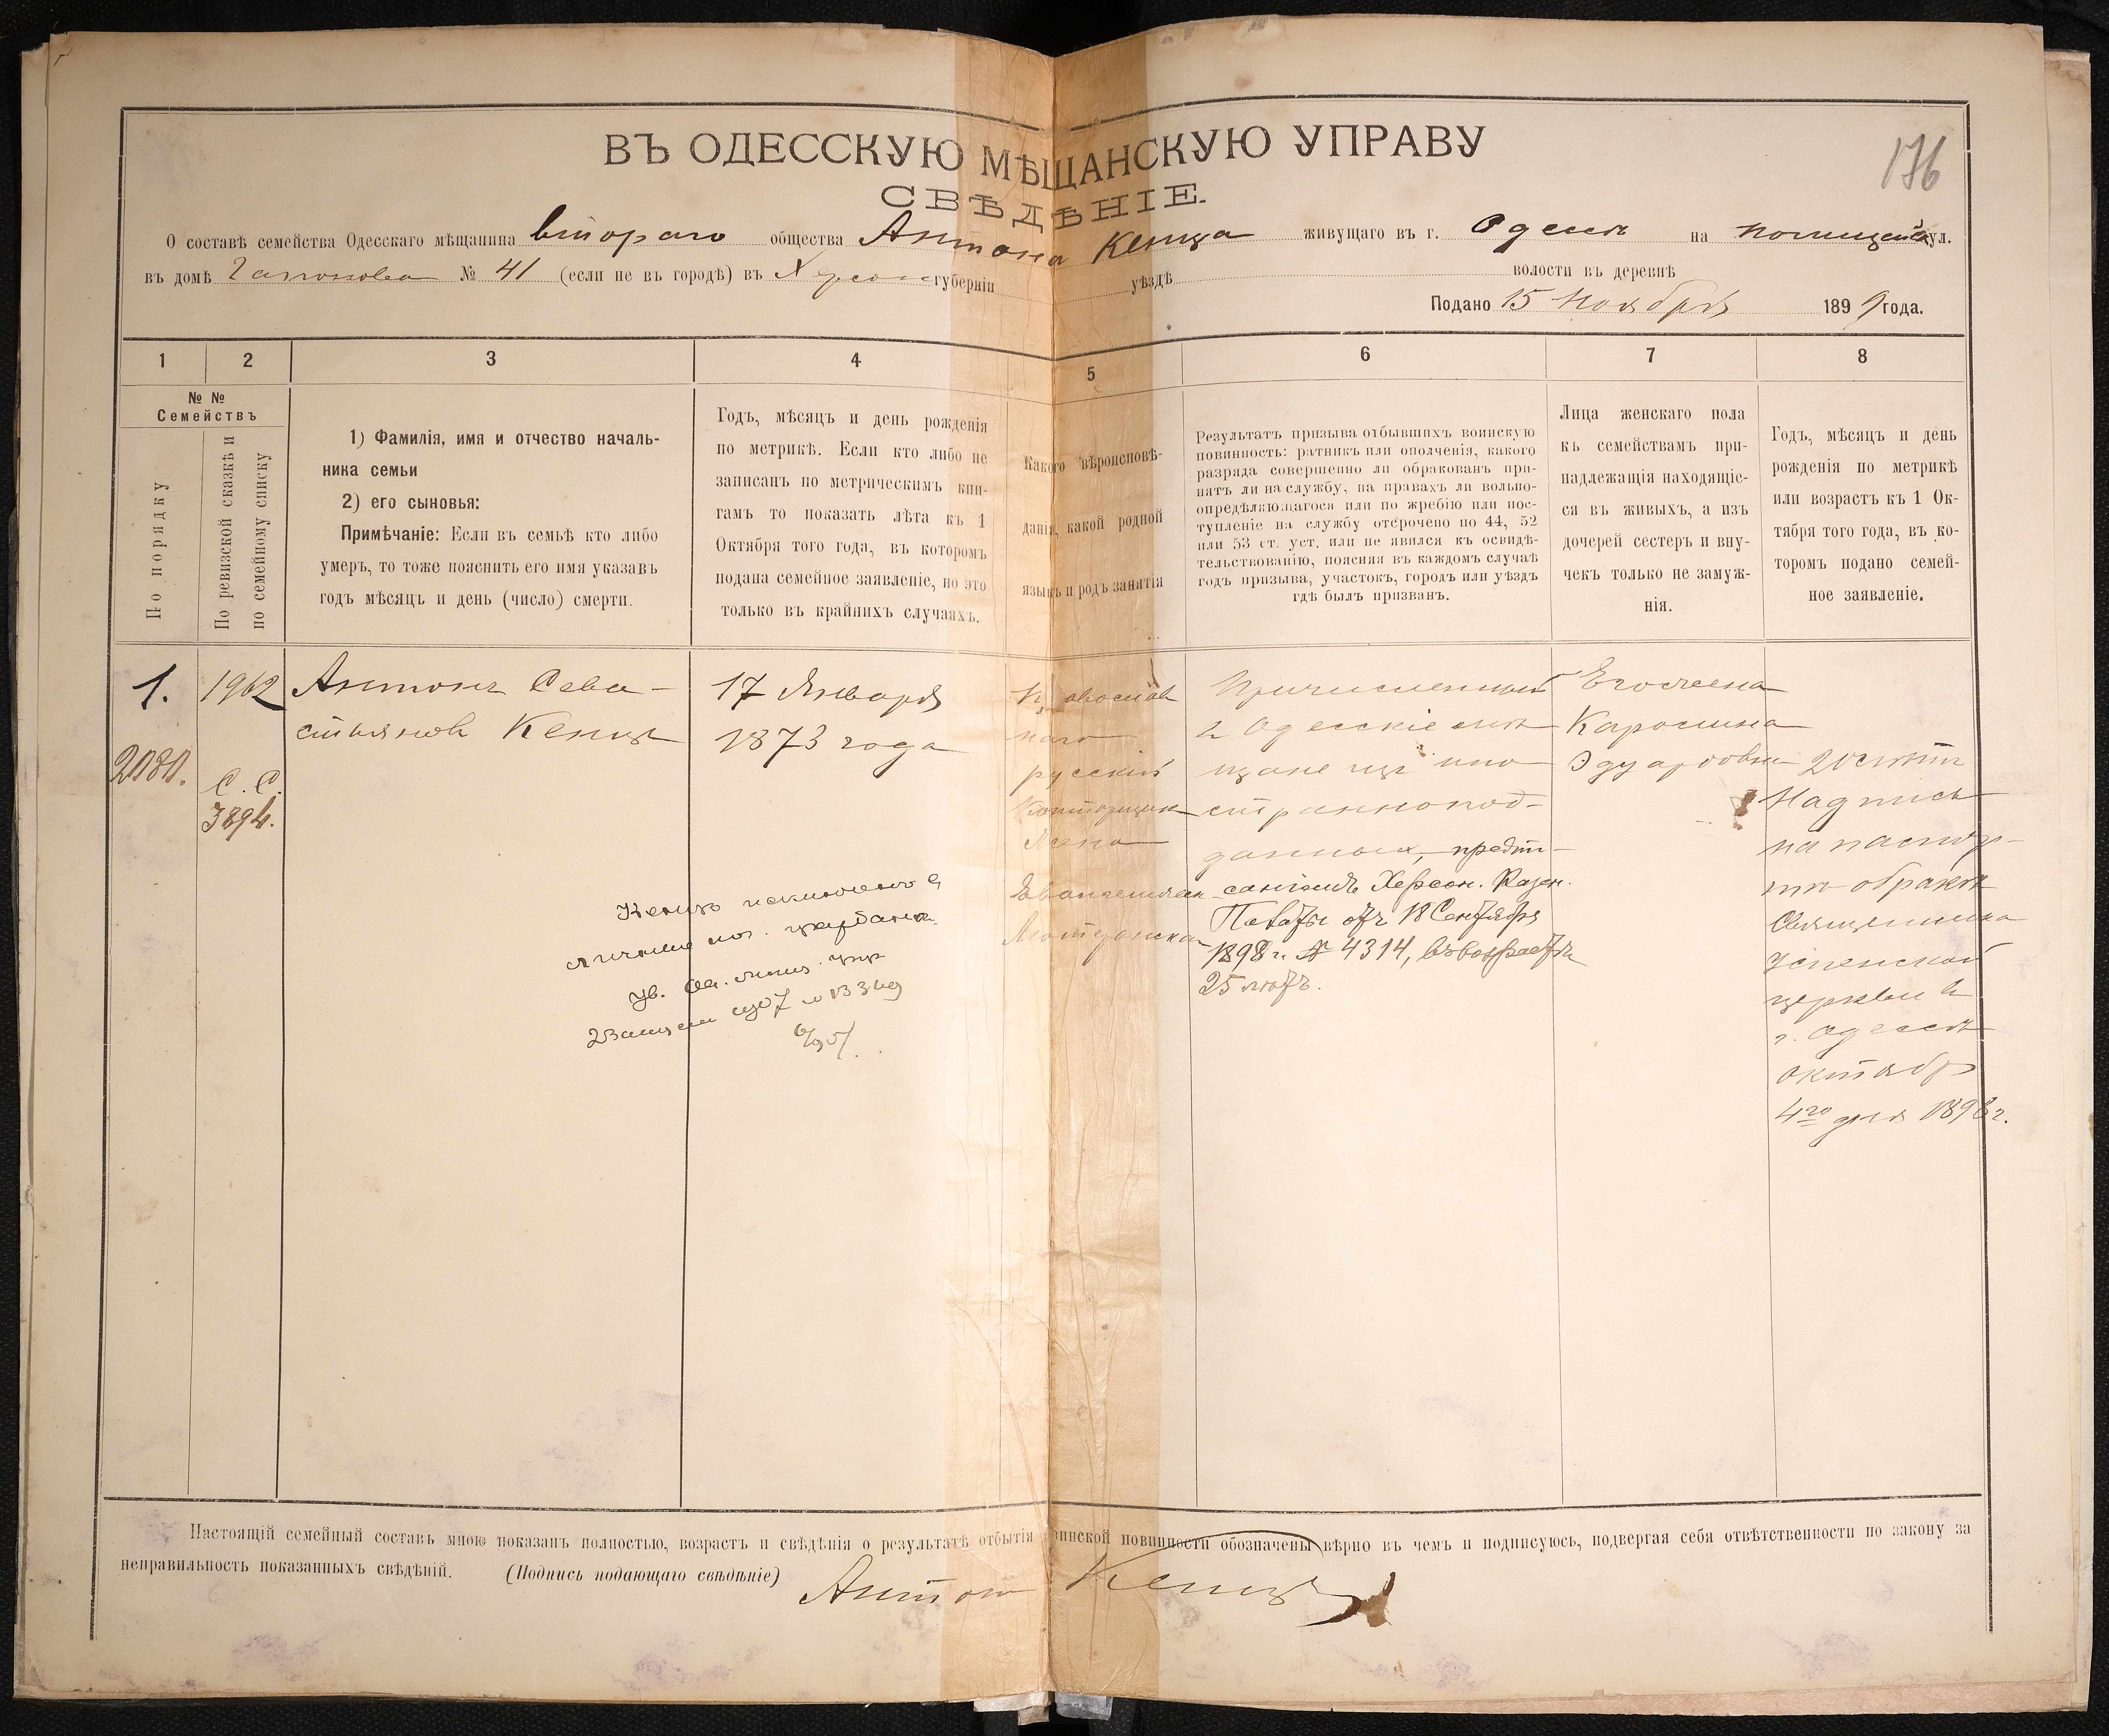 176
ВЪ ОДЕССКУЮ МѢЩАНСКУЮ УПРАВУ
СВѢДѢНІЕ.
О составѣ семейства Одесскаго мѣщанина втораго общества Антона Кенца живущаго въ г. Одессѣ на ул.
въ домѣ № 41 (если не въ городѣ) въ Херсон губерніи уѣздѣ волости въ деревнѣ
Подано 15 Ноября 1899 года.
1 2 3 4 5 6 7 8
№ №
Семействъ
По порядку
По ревизской сказкѣ и
по семейному списку
1) Фамилія, имя и отчество началь-
ника семьи
2) его сыновья:
Примѣчаніе: Если въ семьѣ кто либо
умеръ, то тоже пояснить его имя указавъ
годъ мѣсяцъ и день (число) смерти.
Годъ, мѣсяцъ и день рожденія
по метрикѣ. Если кто либо не
записанъ по метрическимъ кни-
гамъ то показать лѣта къ 1
Октября того года, въ которомъ
подана семейное заявленіе, но это
только въ крайнихъ случаяхъ.
Какого вѣроисповѣ-
данія, какой родной
языкъ и родъ занятія
Результатъ призыва отбывшихъ воинскую
повинность: ратникъ или ополченія, какого
разряда совершенно ли обракованъ при-
нятъ ли на службу, на правахъ ли вольно-
опредѣляющагося или по жребію или пос-
тупленіе на службу отсрочено по 44, 52
или 53 ст. уст. или не явился къ освидѣ-
тельствованію, поясняя въ каждомъ случаѣ
годъ призыва, участокъ, городъ или уѣздъ
гдѣ былъ призванъ.
Лица женскаго пола
къ семействамъ при-
надлежащія находящіе-
ся въ живыхъ, а изъ
дочерей сестеръ и вну-
чекъ только не замуж-
нія.
Годъ, мѣсяцъ и день
рожденія по метрикѣ
или возрастъ къ 1 Ок-
тября того года, въ ко-
торомъ подано семей-
ное заявленіе.
1.
2080.
1962
С. С.
3894.
Антонъ Сева-
стьяновъ Кенцъ
17 Января
1873 года
Православ
наго
русскій
Конторщик
Жена
Евангелическ
Лютеранска
Причисленный
въ Одесскіе мѣ
щане изъ ино
страннопод-
данныхъ, предпи-
саніемъ Херсон. Казен.
Палаты отъ 18 Сентября
1898 г. № 4314, въ возрастѣ
25 лѣтъ.
Его жена
Каролина
Эдуардовна
20 лѣтъ
Надпись
на паспор-
тѣ о бракѣ
Священника
Успенской
церкви въ
г. Одессѣ
октябр
4го дня 1898 г.
Кенцъ исключенъ
Настоящій семейный составъ мною показанъ полностью, возрастъ и свѣдѣнія о результатѣ отбытія воинской повинности обозначены вѣрно въ чемъ и подписуюсь, подвергая себя отвѣтственности по закону за
неправильность показанныхъ свѣдѣній. (Подпись подающаго свѣдѣніе) Антон Кенцъ